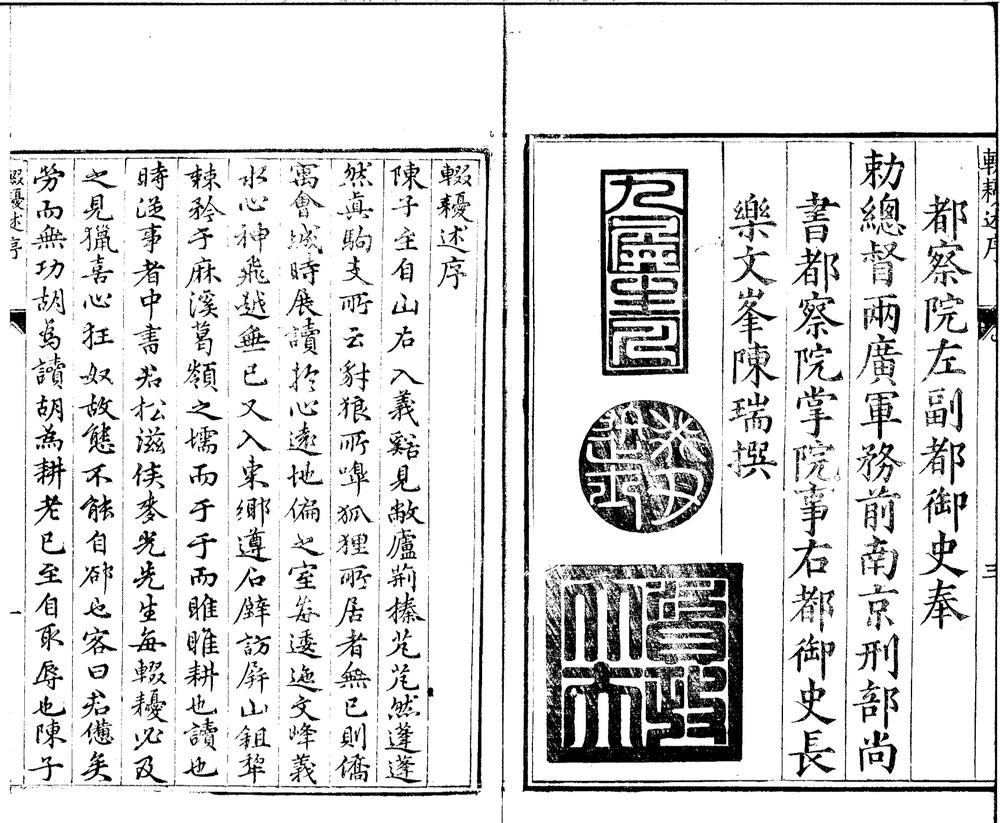 都察院左副都御史奉
勅總督兩廣軍務前南京刑部尚
書都察院掌院事右都御史長
樂文峯陳瑞撰
輟耰述序
陳子至自山右入義谿見敝廬荆榛芃芃然蓬蓬
然真駒支所云豺狼所嘷狐狸所居者無已則僑
寓會城時展讀扵心遠地偏之室每逶迤文峰義
水心神飛越無已又入東鄉遵石壁訪屏山鉏犂
棘矜于麻溪葛嶺之壖而于于而睢睢耕也讀也
時從事者中書君松滋侯麥光先生每輟耰必及
之見獵喜心狂奴故態不能自郤也客曰君憊矣
勞而無功胡為讀胡為耕老已至自取辱也陳子
輟耰述序
一